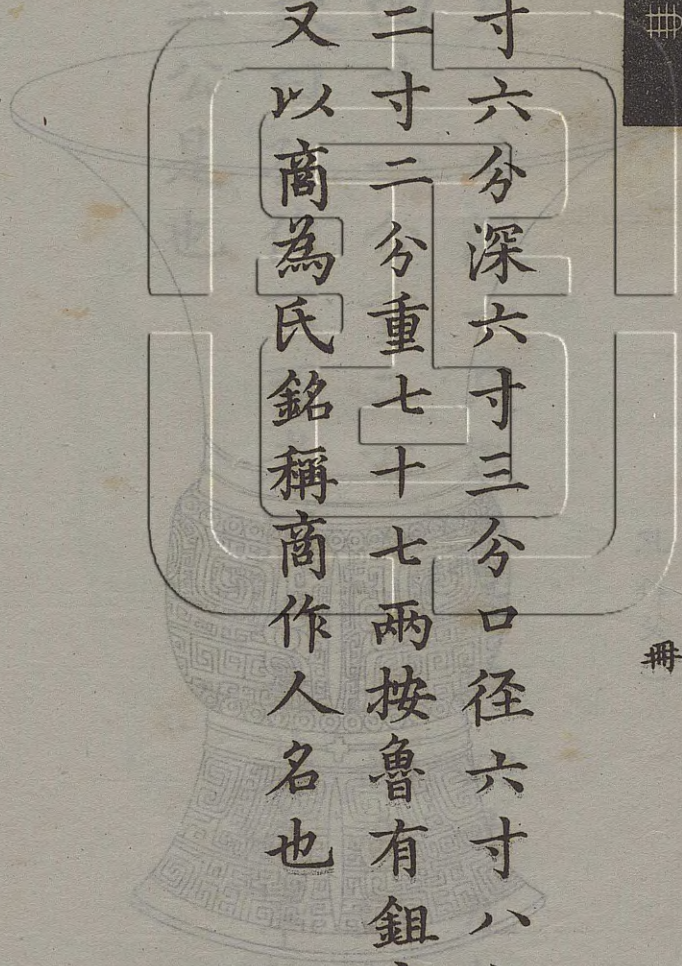 冊
寸六分深六寸三分口径六寸八
二寸二分重七十七兩按魯有鉏
又以商為氏銘稱商作人名也